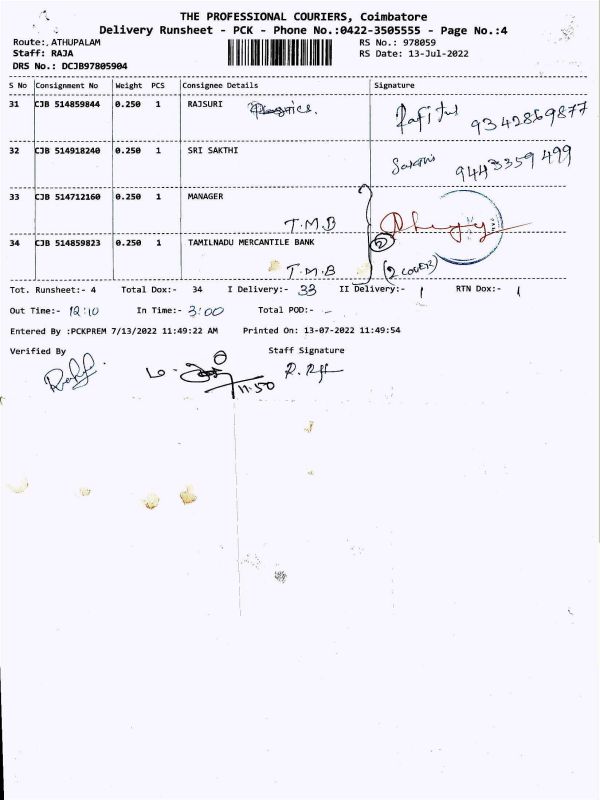 THE PROFESSIONAL COURIERS, Coimbatore
Delivery Runsheet - PCK - Phone No.:0422-3505555 - Page No.:4
Route: ATHUPALAM RS No.: 978059
Staff: RAJA RS Date: 13-Jul-2022
DRS No.: DCJB97805904
S No Consignment No Weight PCS Consignee Details Signature
31 CJB 514859844 0.250 1 RAJSURI 9342869877
32 CJB 514918240 0.250 1 SRI SAKTHI 9443359499
33 CJB 514712160 0.250 1 MANAGER
T.M.B
34 CJB 514859823 0.250 1 TAMILNADU MERCANTILE BANK 2
T.M.B (2 COVER)
Tot. Runsheet:- 4 Total Dox:- 34 I Delivery:- 33 II Delivery:- 1 RTN Dox:- 1
Out Time:- 12:10 In Time:- 3:00 Total POD:- -
Entered By :PCKPREM 7/13/2022 11:49:22 AM Printed On: 13-07-2022 11:49:54
Verified By Staff Signature
11.50